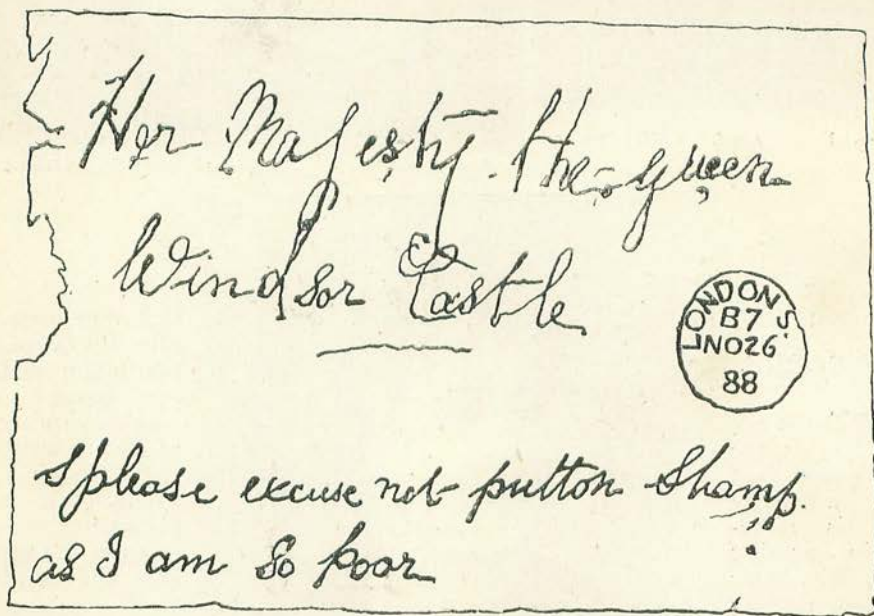 Her Majesty. the queen
Windsor Castle
LONDON S
B7
NO26
88
please excuse not putton Stamp.
as I am so poor